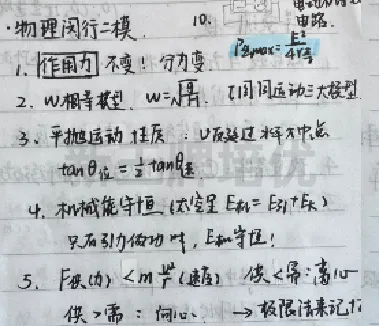 ·物理闵行二模.
10.
电路.
P出max = E²/4r
1. 作用力 不变! 分力变.
2. W相等模型. W=
3. 平抛运动 性质. V反延过水平中点
tanθ位 = 1/2 tanθ速
4. 机械能守恒 (太空里 E机 = E引 + Ek)
只有引力做功时, E机守恒!
5. F供(力) < m v²/r (速度) 供<需:离心
供>需: 向心. →